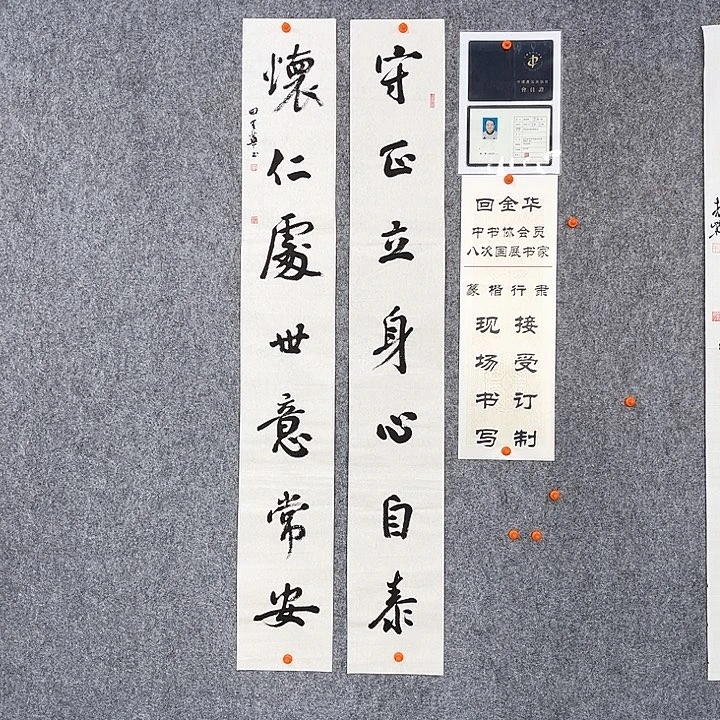 守正立身心自泰
懷仁處世意常安
會員證
回金华
中书协会员
八次国展书家
篆楷行隶
现场书写
接受订制